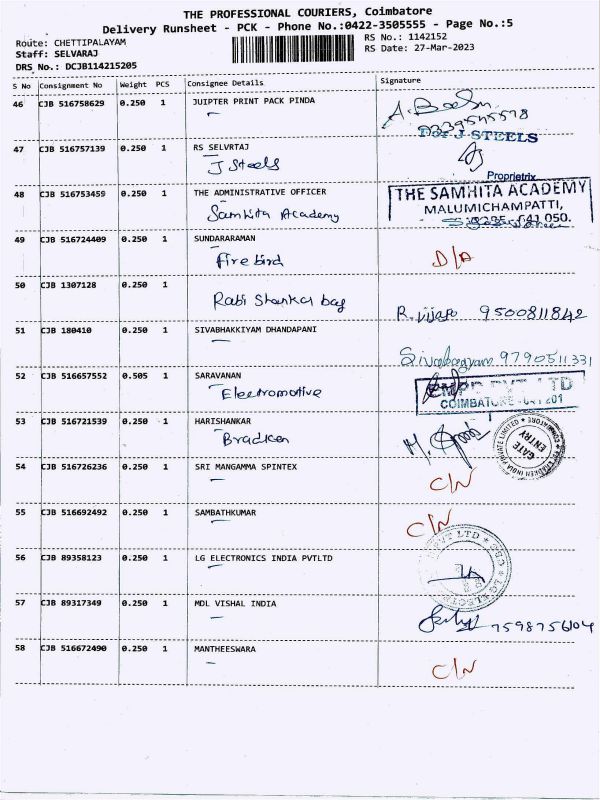 THE PROFESSIONAL COURIERS, Coimbatore
Delivery Runsheet - PCK - Phone No.:0422-3505555 - Page No.:5
Route: CHETTIPALAYAM RS No.: 1142152
Staff: SELVARAJ RS Date: 27-Mar-2023
DRS No.: DCJB114215205
S No Consignment No Weight PCS Consignee Details Signature
46 CJB 516758629 0.250 1 JUIPTER PRINT PACK PINDA
J STEELS
47 CJB 516757139 0.250 1 RS SELVRTAJ
J Steels
Proprietrix
48 CJB 516753459 0.250 1 THE ADMINISTRATIVE OFFICER
Samhita Academy
THE SAMHITA ACADEMY
MALUMICHAMPATTI,
641 050.
49 CJB 516724409 0.250 1 SUNDARARAMAN
Fire bird D/A
50 CJB 1307128 0.250 1
Rabi Shankar bag R. 9500811842
51 CJB 180410 0.250 1 SIVABHAKKIYAM DHANDAPANI
9790511331
52 CJB 516657552 0.505 1 SARAVANAN
Electromotive
PVT LTD
COIMBATORE
53 CJB 516721539 0.250 1 HARISHANKAR
Bradken
GATE
ENTRY
54 CJB 516726236 0.250 1 SRI MANGAMMA SPINTEX
C/N
55 CJB 516692492 0.250 1 SAMBATHKUMAR
C/N
56 CJB 89358123 0.250 1 LG ELECTRONICS INDIA PVTLTD
PVT LTD
57 CJB 89317349 0.250 1 MDL VISHAL INDIA
7598756104
58 CJB 516672490 0.250 1 MANTHEESWARA
C/N